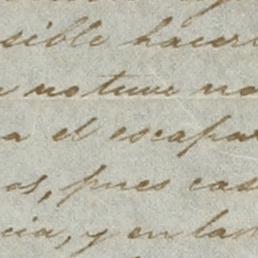 sible hacerl
no tuve no
a el escapar
os, pues cas
cia, y en las